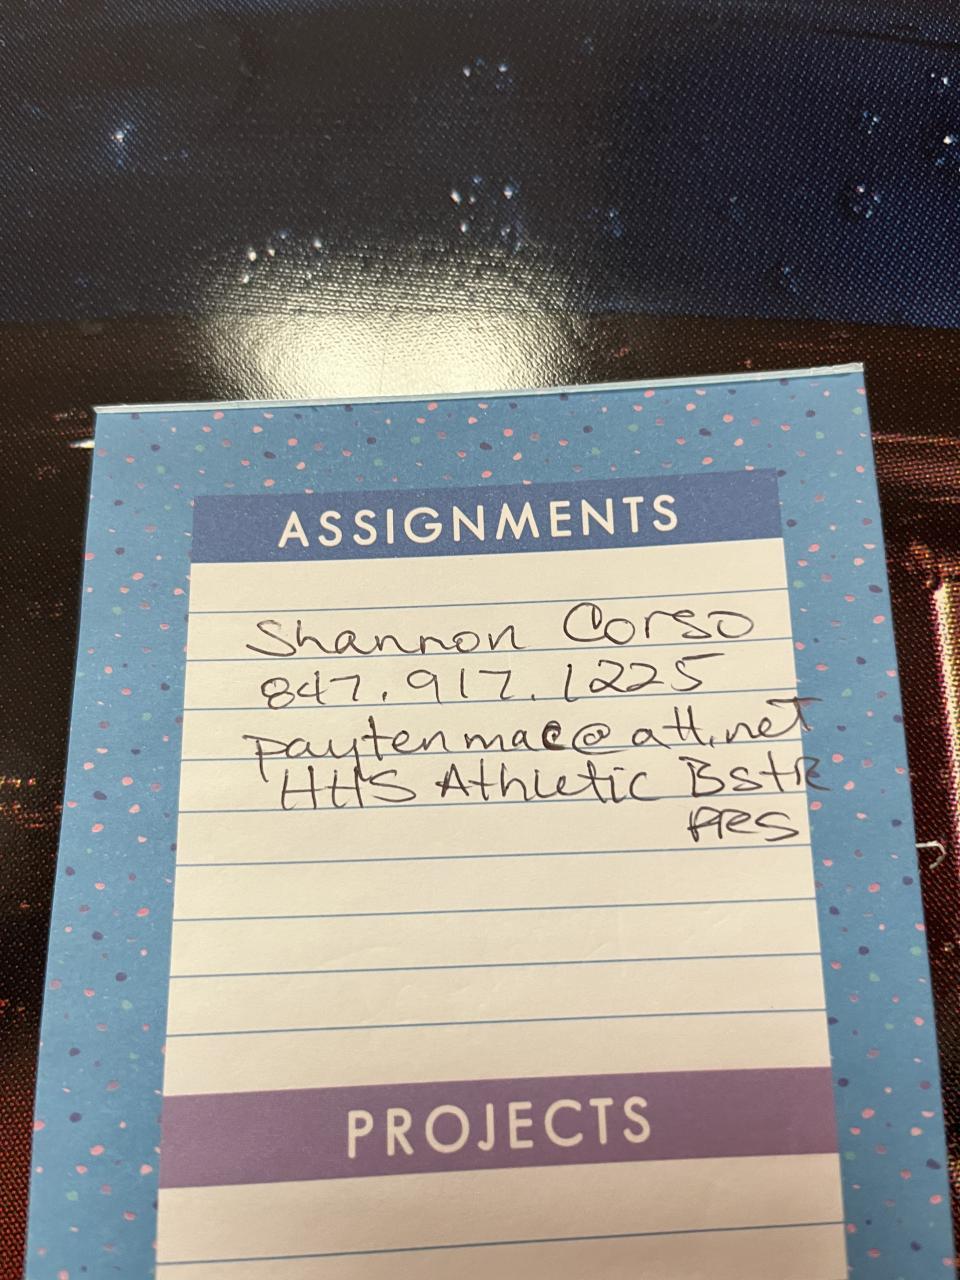 ASSIGNMENTS
Shannon Corso
847.917.1225
paytenmac@att.net
HHS Athletic Bstr
PRES
PROJECTS